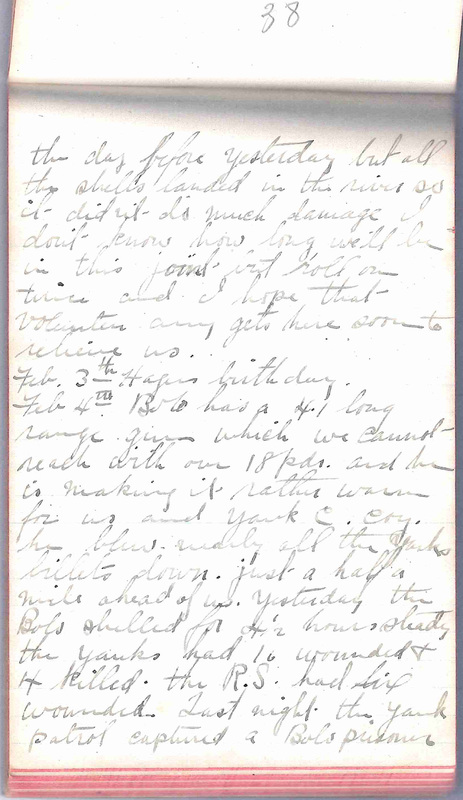 38
the day before yesterday but all
the shells landed in the river so
it didn't do much damage I
don't know how long we'll be
in this joint but roll on
time and I hope that
Volunteer army gets here soon to
relieve us.
Feb. 3th Hazes birthday.
Feb 4th Bolo has a 4.1 long
range gun which we cannot
reach with our 18 pds. and he
is making it rather warm
for us and Yank C. Coy.
he blew nearly all the Yanks
billets down. just a half a
mile ahead of us. Yesterday the
Bolo shelled for 4½ hours steady
the Yanks had 16 wounded &
4 killed. the R.S. had six
wounded. Last night the Yank
patrol captured a Bolo prisoner